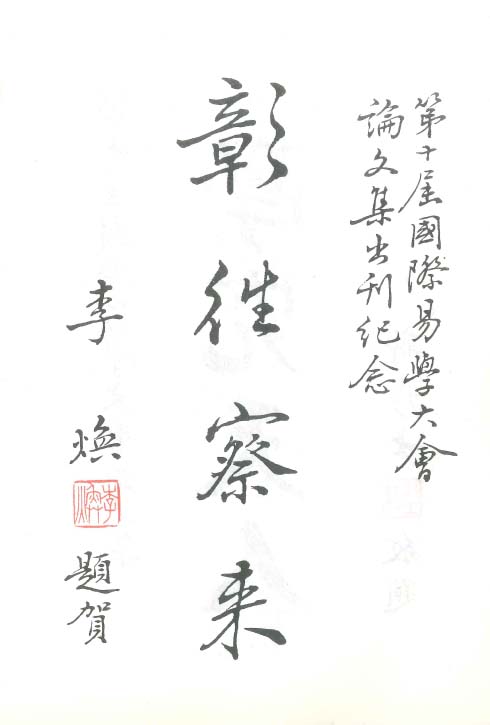 第十屆國際易學大會
論文集出刊紀念
彰往察来
李煥
李煥
題賀